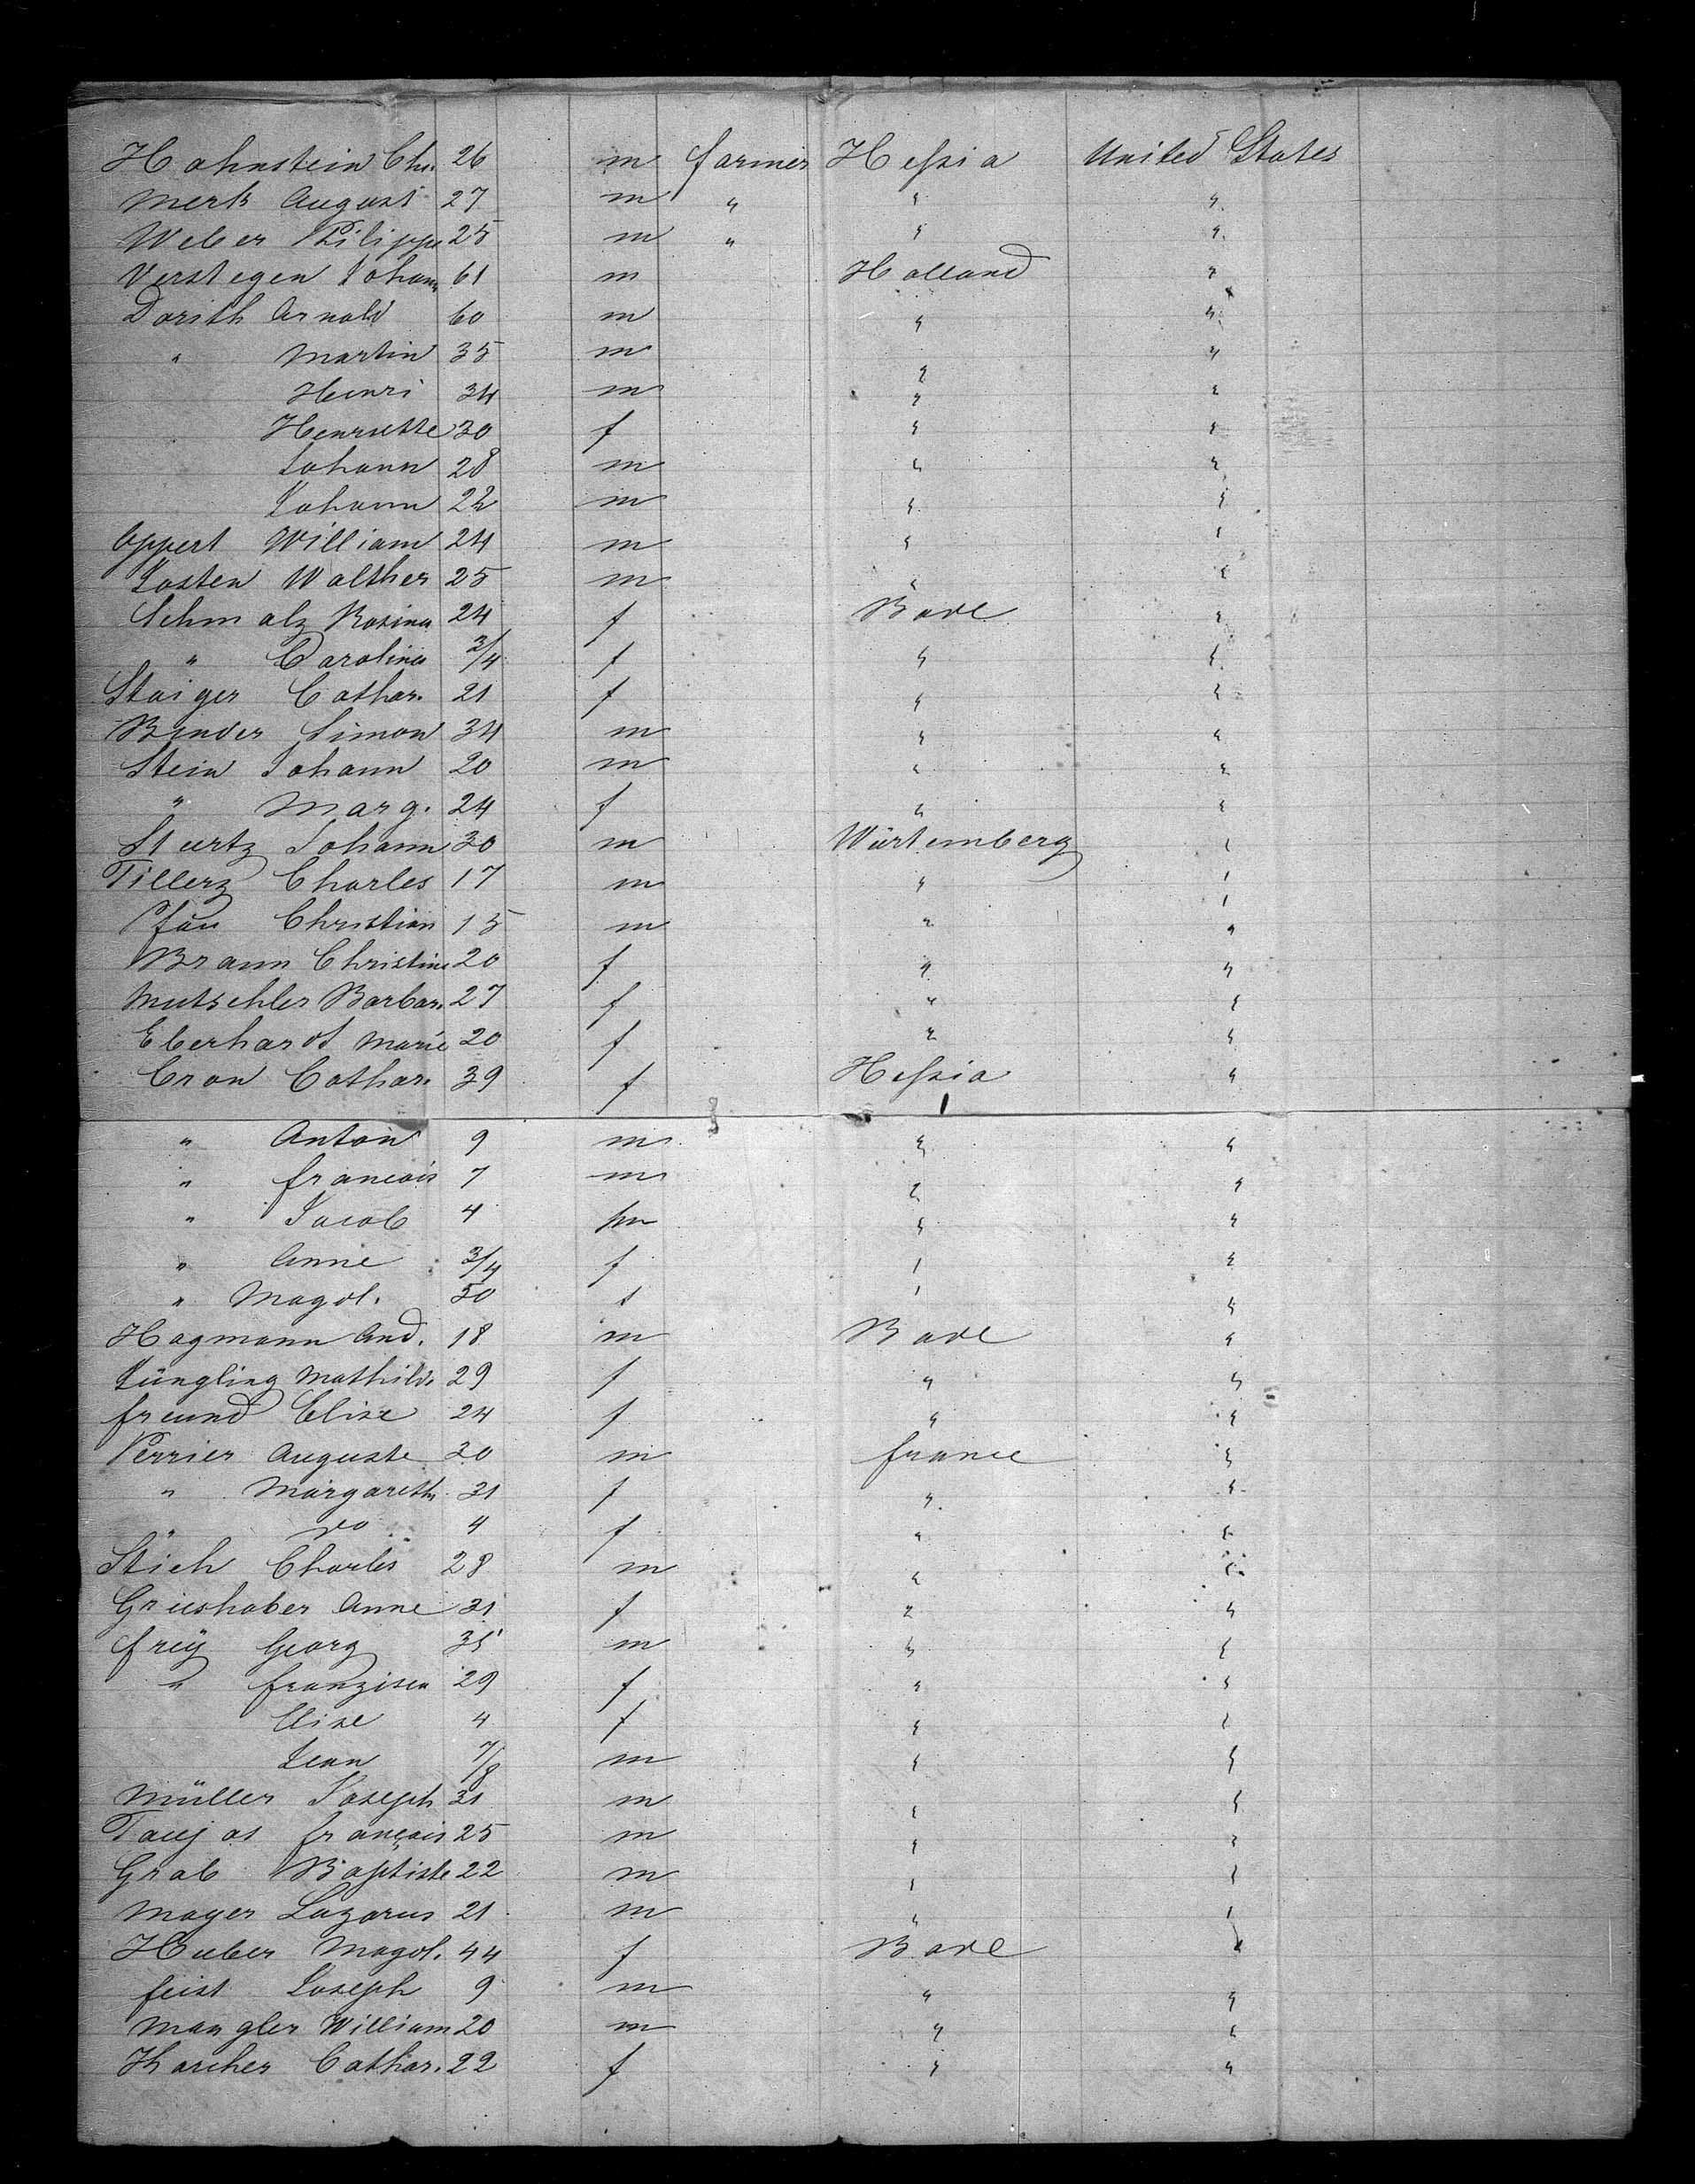 Hohnstein Chr. 26 m farmer Hessia United States
Merk August 27 m " " "
Weber Philippe 25 m " " "
Verstegen Johann 61 m Holland "
Dorith Arnold 60 m " "
" Martin 35 m " "
Henri 34 m " "
Henriette 30 f " "
Johann 28 m " "
Johann 22 m " "
Oppert William 24 m " "
Josten Walther 25 m " "
Schmalz Rosina 24 f Bade "
" Carolina 3/4 f " "
Staiger Cathar. 21 f " "
Binder Simon 34 m " "
Stein Johann 20 m " "
" Marg. 24 f " "
Sturtz Johann 30 m Würtemberg "
Tillerz Charles 17 m " "
Pfau Christian 15 m " "
Braun Christine 20 f " "
Mutschler Barbar. 27 f " "
Eberhardt Marie 20 f " "
Cron Cathar. 39 f Hessia "
" Anton 9 m " "
" francois 7 m " "
" Jacob 4 m " "
" Anne 3/4 f " "
" Magd. 50 f " "
Hagmann And. 18 m Bade "
Jüngling Mathilde 29 f " "
freund Elise 24 f " "
Perrier Auguste 30 m france "
" Margareth 31 f " "
" do 4 f " "
Stich Charles 28 m " "
Grieshaber Anne 31 f " "
freÿ Georg 35 m " "
" franzisca 29 f " "
Elise 4 f " "
Jean 7/8 m " "
Müller Joseph 31 m " "
francois 25 m " "
Grab Baptiste 22 m " "
Mayer Lazarus 21 m " "
Huber Magd. 44 f Bade "
feist Joseph 9 m " "
Mangler William 20 m " "
Karcher Cathar. 22 f " "